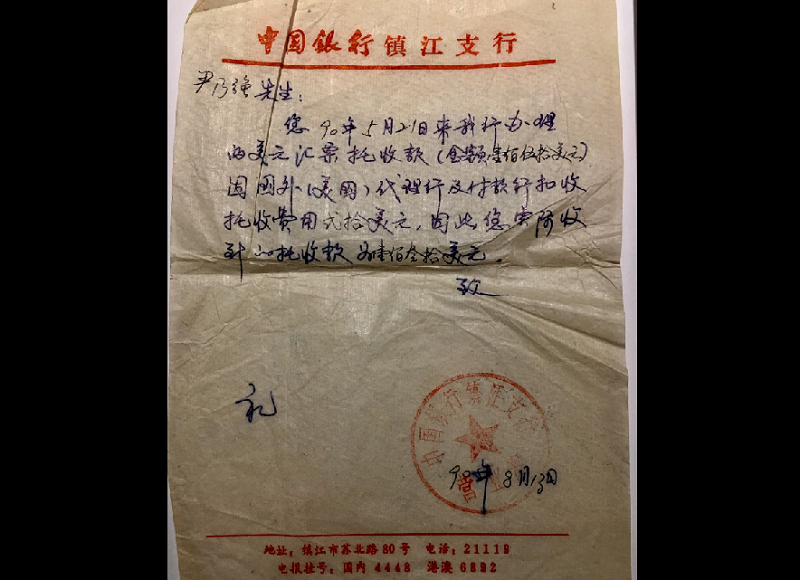 中国银行镇江支行
尹乃强先生：
您90年5月21日来我行办理
的美元汇票托收款（金额壹佰伍拾美元）
因国外（美国）代理行及付款行扣收
托收费用弍拾美元，因此您实际收
到的托收款为壹佰叁拾美元。
致
礼
中国银行镇江支行
90年8月13日
地址：镇江市苏北路80号 电话：21119
电报挂号：国内4448 港澳6892